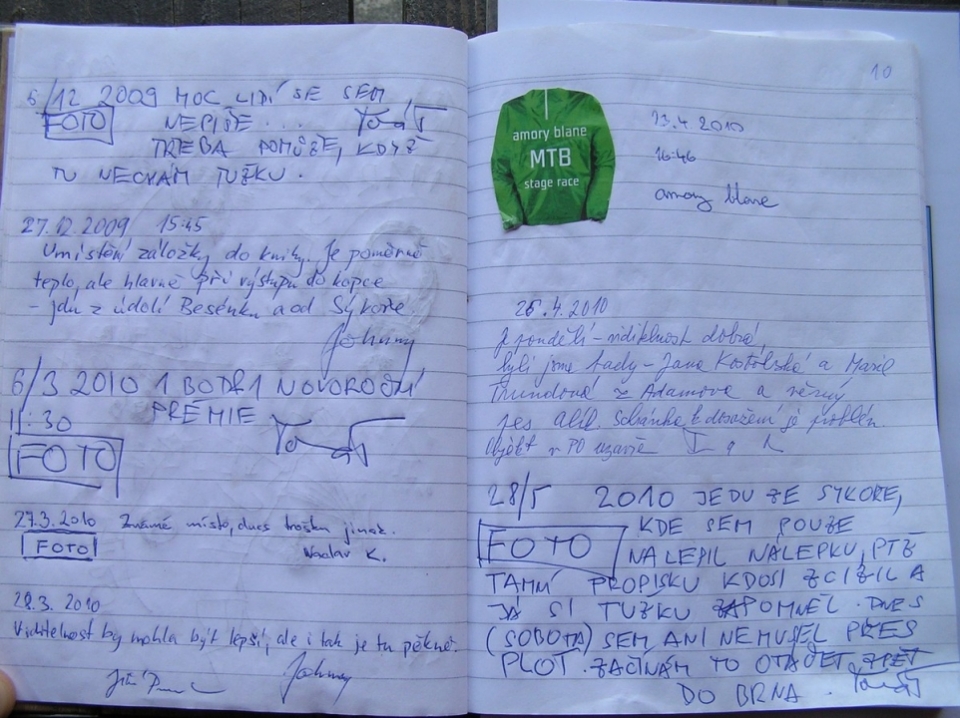 6/12 2009 MOC LIDÍ SE SEM
FOTO NEPÍŠE ...
TŘEBA POMŮŽE, KDYŽ
TU NECHÁM TUŽKU.
27.12.2009 15:45
Umístění záložky do knihy. Je poměrně
teplo, ale hlavně při výstupu do kopce
- jdu z údolí Besénku a od Sýkoře.
Johnny
6/3 2010 1 BOD A 1 NOVOROČNÍ
11:30 PRÉMIE
FOTO
27.3.2010 Známé místo, dnes trošku jinak.
FOTO Václav K.
28.3. 2010
Viditelnost by mohla být lepší, ale i tak je tu pěkně.
Johnny
10
amory blane
MTB
stage race
13.4.2010
16:46
amory blane
26.4.2010
Je pondělí - viditelnost dobrá,
byli jsme tady - Jana Kostelská a
z Adamova a věrný
pes Schránka k dosažení je problém.
Objekt v PO uzavře
28/5 2010 JEDU ZE SYKOŘE,
KDE SEM POUZE
FOTO NALEPIL NÁLEPKU, PTŽ
TAMNÍ PROPISKU KDOSI ZCIZIL A
JÁ SI TUŽKU ZAPOMNĚL. DNES
(SOBOTA) SEM ANI NEMUSEL PŘES
PLOT. ZAČÍNÁM TO OTÁČET ZPĚT
DO BRNA.